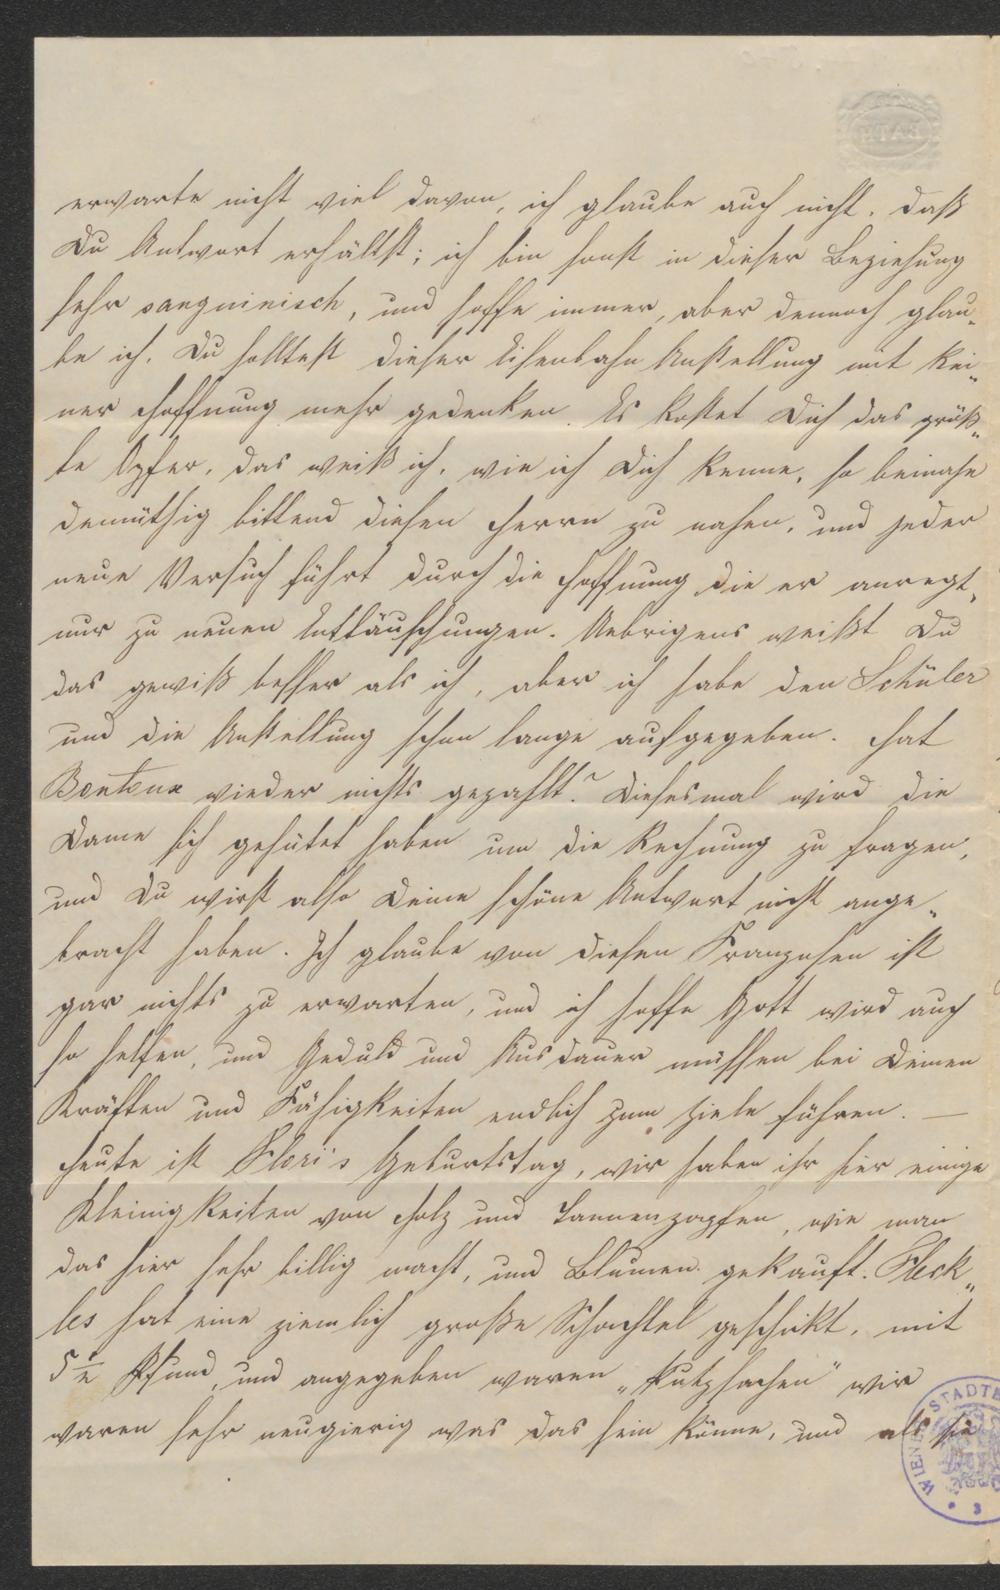 BATH
erwarte nicht viel davon, ich glaube auch nicht, daß
Du Antwort erhältst; ich bin sonst in dieser Beziehung
sehr sanguinisch, und hoffe immer, aber dennoch glau„
be ich, Du solltest dieser Eisenbahn Anstellung mit kei„
ner Hoffnung mehr gedenken. Es kostet Dich das größ„
te Opfer, das weiß ich, wie ich Dich kenne, so beinahe
demüthig bittend diesen Herrn zu nahen, und jeder
neue Versuch führt durch die Hoffnung die er anregt,
nur zu neuen Enttäuschungen. Uebrigens weißt Du
das gewiß besser als ich, aber ich habe den Schüler
und die Anstellung schon lange aufgegeben. Hat
Bontoux wieder nichts gezahlt? Diesesmal wird die
Dame sich gehütet haben um die Rechnung zu fragen,
und Du wirst also Deine schöne Antwort nicht ange„
bracht haben. Ich glaube von diesen Franzosen ist
gar nichts zu erwarten, und ich hoffe Gott wird auch
so helfen, und Geduld und Ausdauer müssen bei Deinen
Kräften und Fähigkeiten endlich zum Ziele führen. —
Heute ist Flori's Geburtstag, wir haben ihr hier einige
Kleinigkeiten von Holz und Tannenzapfen, wie man
das hier sehr billig macht, und Blumen gekauft. Fleck„
les hat eine ziemlich große Schachtel geschickt, mit
5½ Pfund, und angegeben waren „Putzsachen" wir
waren sehr neugierig was das sein könne, und als sie
WIENER STADTB
3